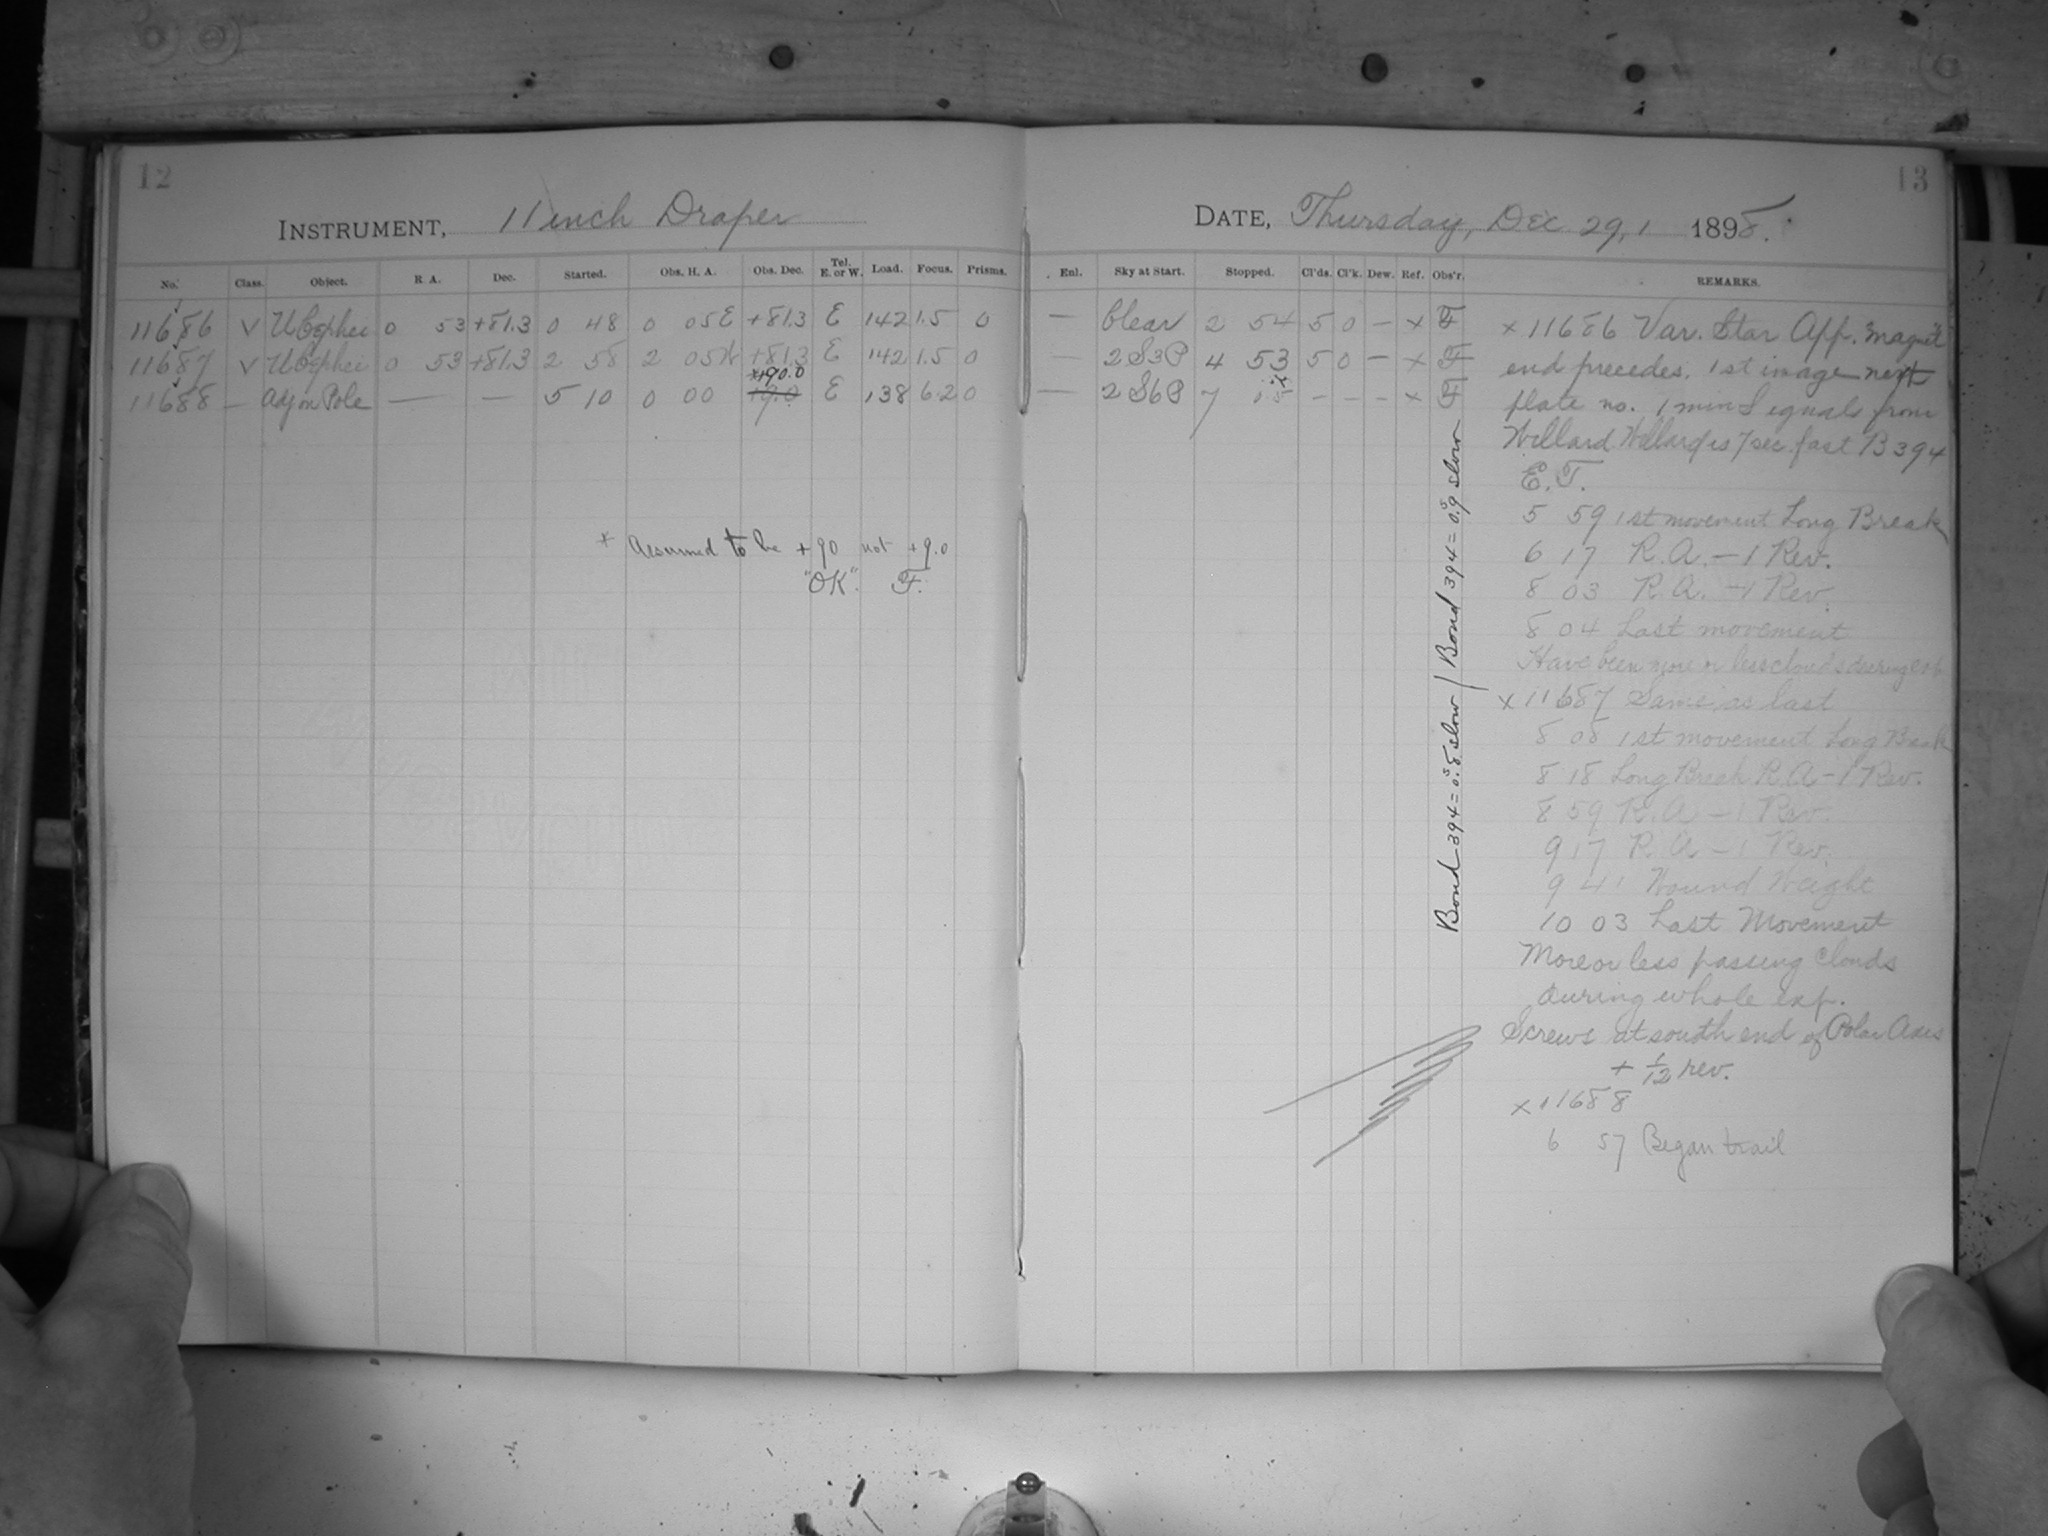 12
INSTRUMENT, 11 inch Draper
No. Class. Object. R A. Dec. Started. Obs. H. A. Obs. Dec. Tel. E. or W. Load. Focus. Prisms.
11686 V U Cephei 0 53 +81.3 0 48 0 05E +81.3 E 142 1.5 0
11687 V U Cephei 0 53 +81.3 2 58 2 05W +81.3 E 142 1.5 0
*+90.0
11688 — Adj on Pole — — 5 10 0 00 +9.0 E 138 6.2 0
* Assumed to be +90 not +9.0
"OK". F.
13
DATE, Thursday, Dec 29, 1898.
Enl. Sky at Start. Stopped. Cl'ds. Cl'k. Dew. Ref. Obs'r. REMARKS.
— Clear 2 54 5 0 — x F
— 2S3P 4 53 5 0 — x F
— 2S6P 7 15 - - - x F
Bond 394 = 0.8s slow / Bond 394 = 0.9s slow
x 11686 Var. Star App. magnet
end precedes. 1st image next
plate no. 1 min S equals from
Willard Willard is 7 sec. fast B 394
E. F.
5 59 1st movement Long Break
6 17 R.A. – 1 Rev.
8 03 R.A. – 1 Rev.
8 04 Last movement
Have been more or less clouds during exp.
x 11687 Same as last
8 08 1st movement Long Break
8 18 Long Break R.A – 1 Rev.
8 59 R.A – 1 Rev.
9 17 R.A – 1 Rev.
9 41 Wound Weight
10 03 Last Movement
More or less passing clouds
during whole exp.
Screws at south end of Polar Axis
+ 1/12 rev.
x 11688
6 57 Began trail